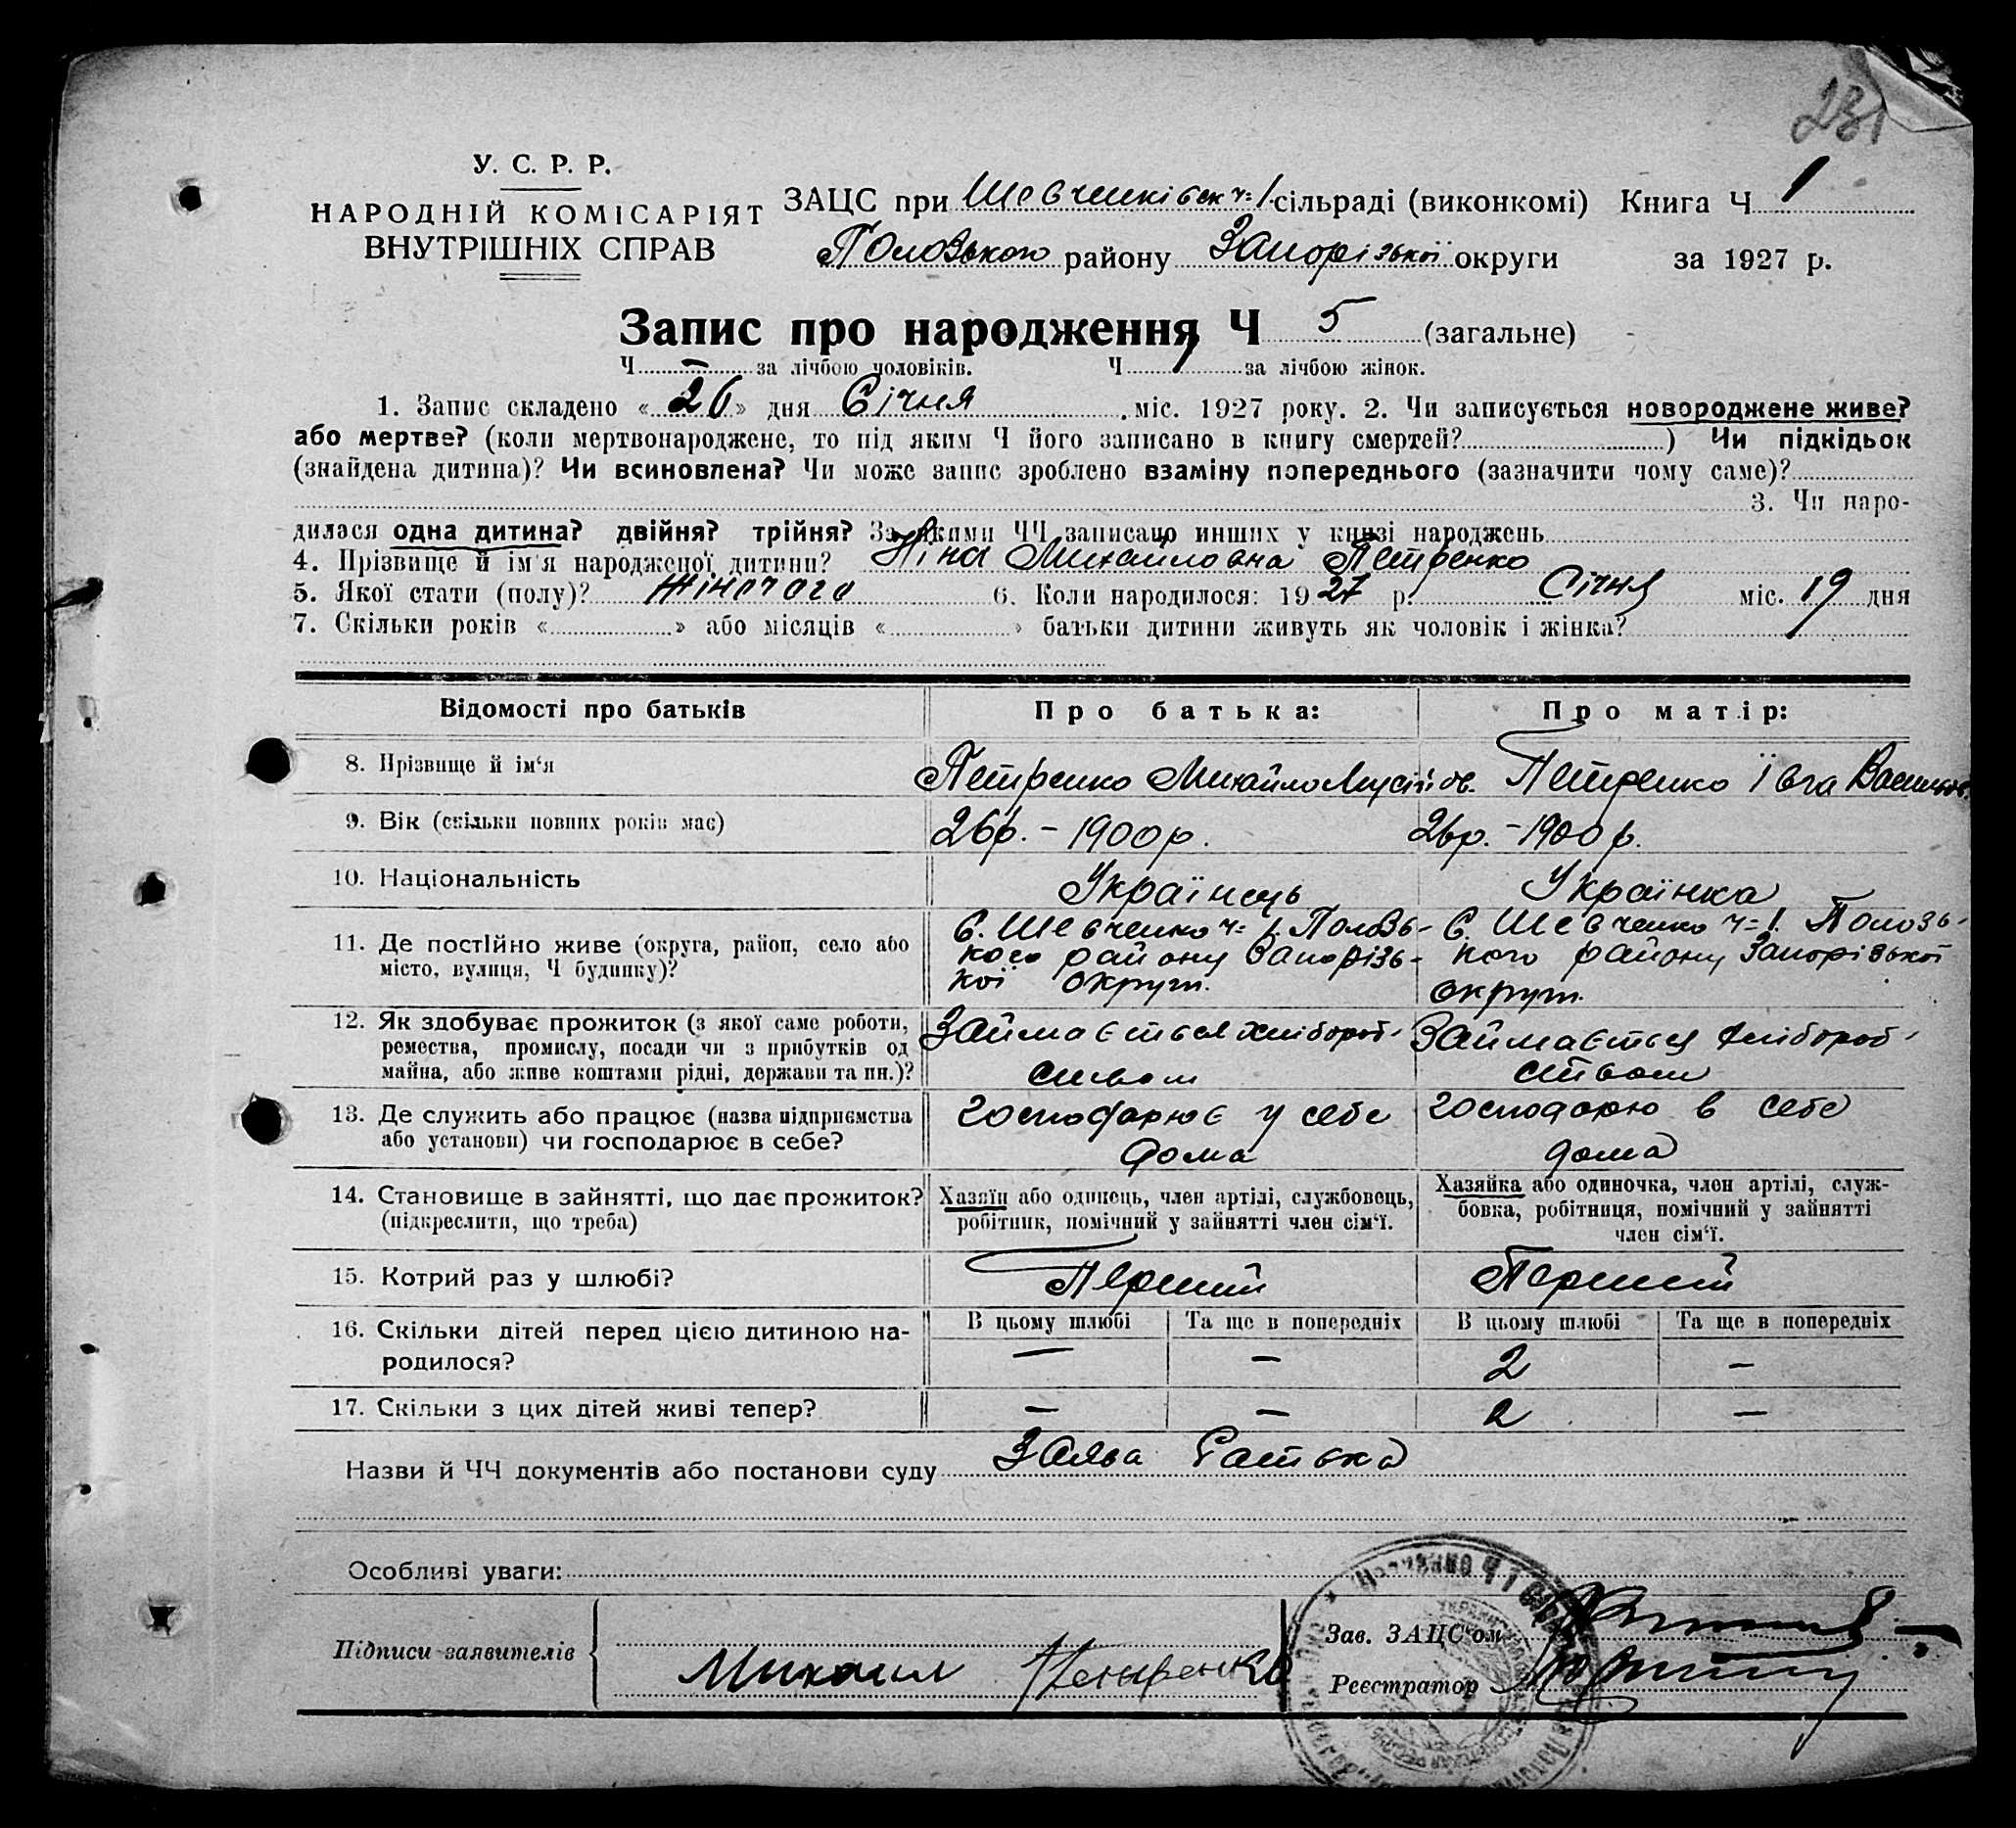 231
У. С. Р. Р.
НАРОДНІЙ КОМІСАРІЯТ
ВНУТРІШНІХ СПРАВ
ЗАЦС при Шевченківск ч=1 сільраді (виконкомі) Книга Ч 1
Пологзького району Запорізької округи за 1927 р.
Запис про народження Ч 5 (загальне)
Ч — за лічбою чоловіків. Ч 1 за лічбою жінок.
1. Запис складено «26» дня Січня міс. 1927 року. 2. Чи записується новороджене живе?
або мертве? (коли мертвонароджене, то під яким Ч його записано в книгу смертей?) Чи підкідьок
(знайдена дитина)? Чи всиновлена? Чи може запис зроблено взаміну попереднього (зазначити чому саме)?
3. Чи наро-
дилася одна дитина? двійня? трійня? За якими ЧЧ записано инших у книзі народжень
4. Прізвище й ім'я народженої дитини? Ніна Михайловна Петренко
5. Якої стати (полу)? Жіночого 6. Коли народилося: 1927 р. Січня міс. 19 дня
7. Скільки років «» або місяців «» батьки дитини живуть як чоловік і жінка?
Відомості про батьків Про батька: Про матір:
8. Прізвище й ім'я Петренко Михайло Мусійов. Петренко Ївга Васильов.
9. Вік (скільки повних років має) 26р. – 1900р. 26р. – 1900р.
10. Національність Українець Українка
11. Де постійно живе (округа, район, село або
місто, вулиця, Ч будинку)?
С. Шевченко ч=1. Пологзь-
кого району Запорізь-
кої округи.
С. Шевченко ч=1. Пологзь-
кого району Запорізької
округи.
12. Як здобуває прожиток (з якої саме роботи,
ремества, промислу, посади чи з прибутків од
майна, або живе коштами рідні, держави та ин.)?
Займається хлібороб-
ством
Займається хлібороб-
ством
13. Де служить або працює (назва підприємства
або установи) чи господарює в себе?
господарює у себе
дома
господарю в себе
дома
14. Становище в зайнятті, що дає прожиток?
(підкреслити, що треба)
Хазяїн або одинець, член артілі, службовець,
робітник, помічний у зайнятті член сім'ї.
Хазяйка або одиночка, член артілі, служ-
бовка, робітниця, помічний у зайнятті
член сім'ї.
15. Котрий раз у шлюбі? Перший Перший
16. Скільки дітей перед цією дитиною на-
родилося?
В цьому шлюбі Та ще в попередніх В цьому шлюбі Та ще в попередніх
— — 2 —
17. Скільки з цих дітей живі тепер? — — 2 —
Назви й ЧЧ документів або постанови суду Заява батька
Особливі уваги:
Підписи заявителів
Михаил Петренко
Зав. ЗАЦС'ом
Реєстратор